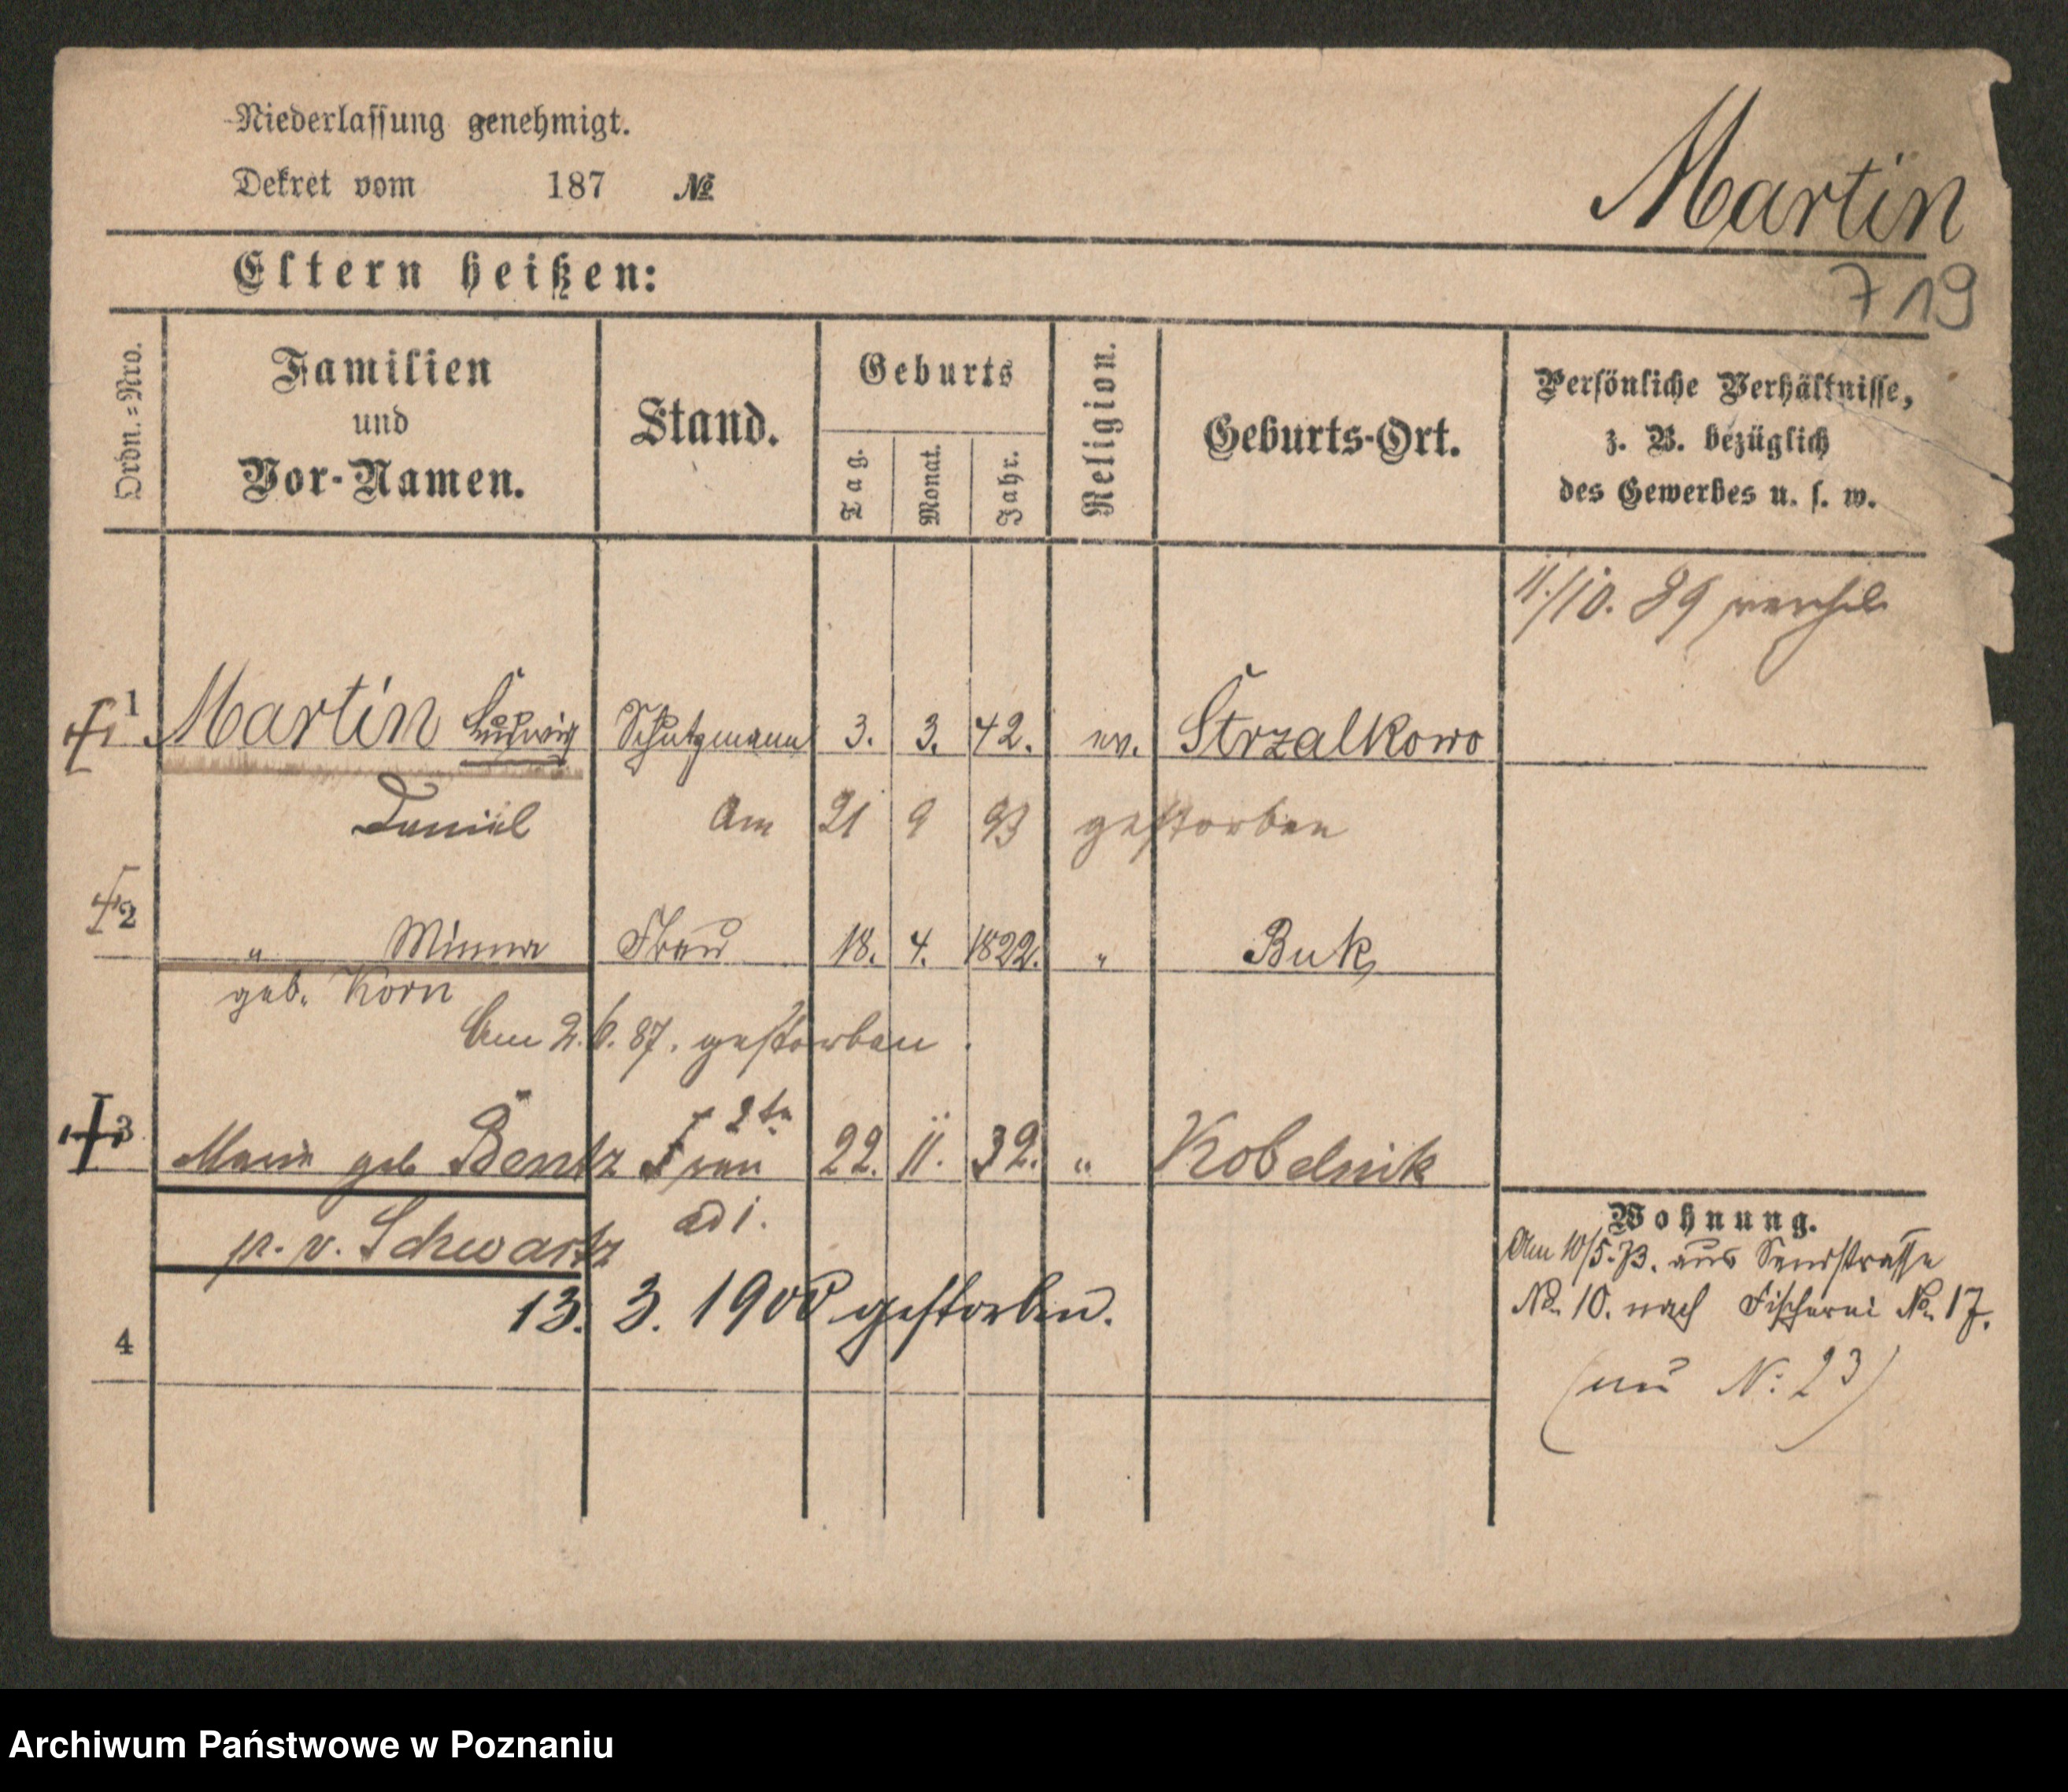 Niederlassung genehmigt.
Dekret vom 187 №
Martin
719
Eltern heißen:
Ordn.=Nro.
Familien
und
Vor-Namen.
Stand.
Geburts
Tag.
Monat.
Jahr.
Religion.
Geburts-Ort.
Persönliche Verhältnisse,
z. B. bezüglich
des Gewerbes u. s. w.
11./10. 89
1 Martin Ludwig Schutzmann 3. 3. 42. ev. Strzalkowo
Daniel Am 21 9 93 gestorben
2 " Minna Frau 18. 4. 1822. " Buk
geb. Korn
Am 2. 6. 87. gestorben.
3 Marie geb Bentz 2te Frau 22. 11. 32. " Kobelnik
ad 1.
p. v. Schwartz
13. 3. 1900 gestorben.
4
Wohnung.
Am 10/5. 73. aus Sandstrasse
No. 10. nach Fischerei No. 17.
(nun N: 23)